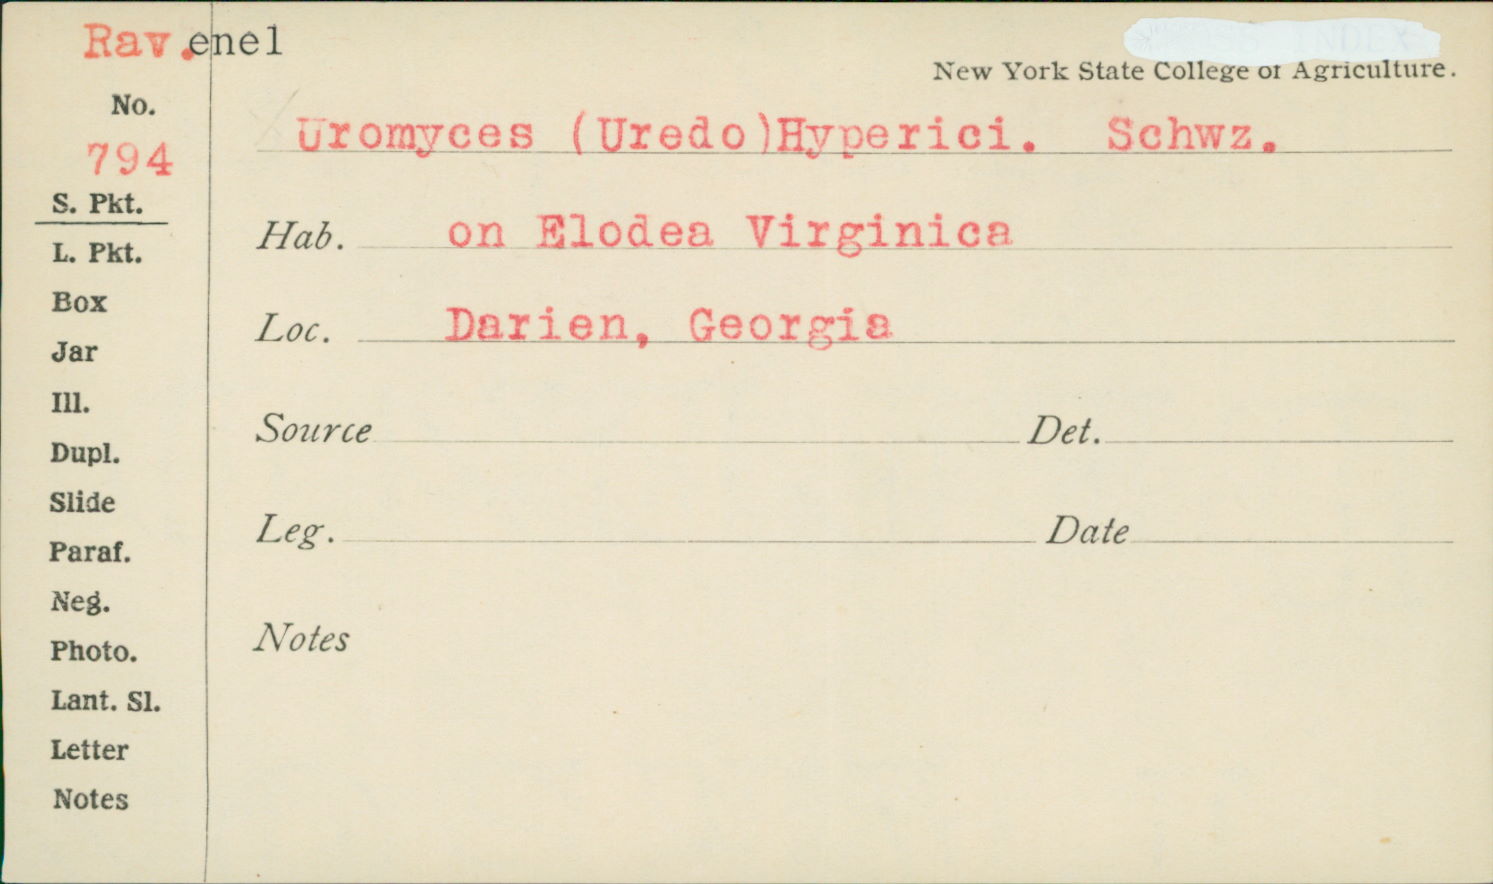 Rav.enel
New York State College of Agriculture.
No.
794
Uromyces (Uredo)Hyperici. Schwz.
S. Pkt.
Hab. on Elodea Virginica
L. Pkt.
Box
Loc. Darien, Georgia
Jar
Ill.
Source Det.
Dupl.
Slide
Leg. Date
Paraf.
Neg.
Notes
Photo.
Lant. Sl.
Letter
Notes